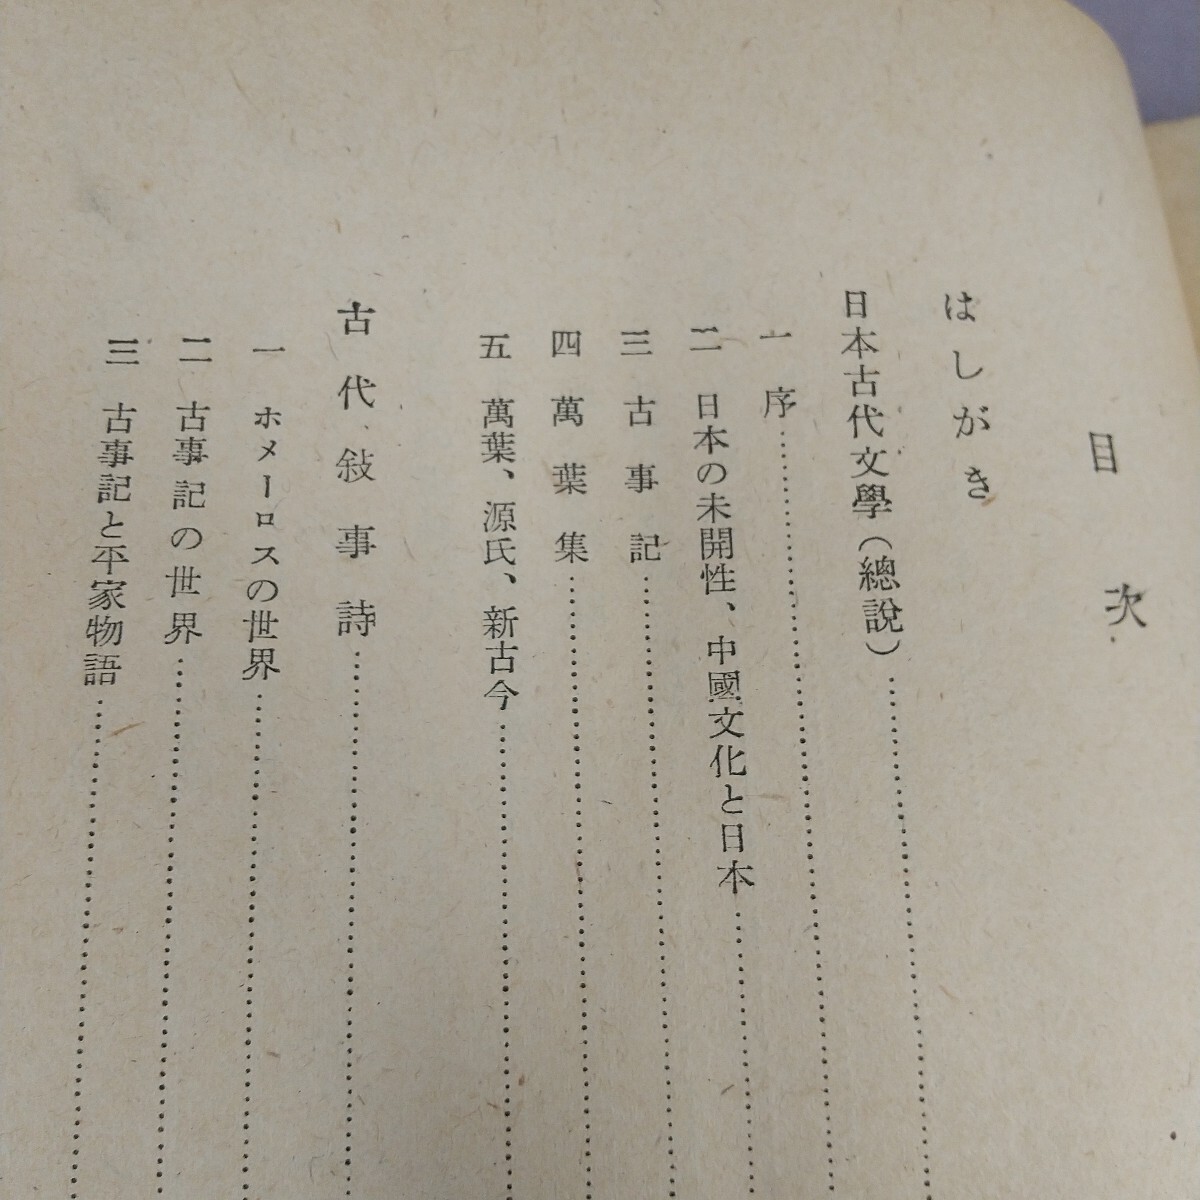 目次
はしがき
日本古代文學（總說）
一 序
二 日本の未開性、中國文化と日本
三 古事記
四 萬葉集
五 萬葉、源氏、新古今
古代敍事詩
一 ホメーロスの世界
二 古事記の世界
三 古事記と平家物語